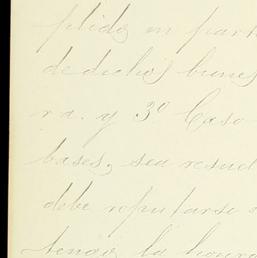 plidos en part
de dichos bienes
ra. y 3º Caso
bases, sea resuel
debe reputarse
tengo la honra